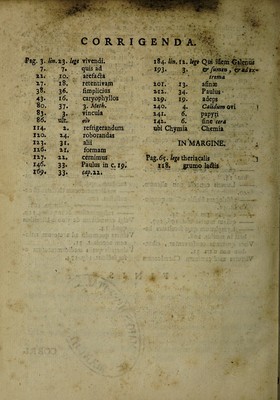 CORRIGENDA.
Pag. 3. lin. 23. lege vivendi.
7. 7. quis ad
22. 10. arefacta
27. 18. retentivam
38. 36. simplicius
43. 16. caryophyllos
80. 37. 3. Meth.
83. 3. vincula
86. ult. vir
114. 2. refrigerandum
120. 24. roborandas
123. 31. alii
126. 21. formam
127. 22. cernimus
146. 33. Paulus in c. 19.
169. 33. cap. 22.
184. lin. 12. lege Qui idem Galenus
193. 3. & summo, & ad extrema
201. 13. asinæ
211. 34. Paulus
219. 19. adeps
240. 4. Calidum ovi
241. 6. papyri
242. 6. sine cera
ubi Chymia Chemia
IN MARGINE.
Pag. 65. lege theriacalis
118. grumo lactis